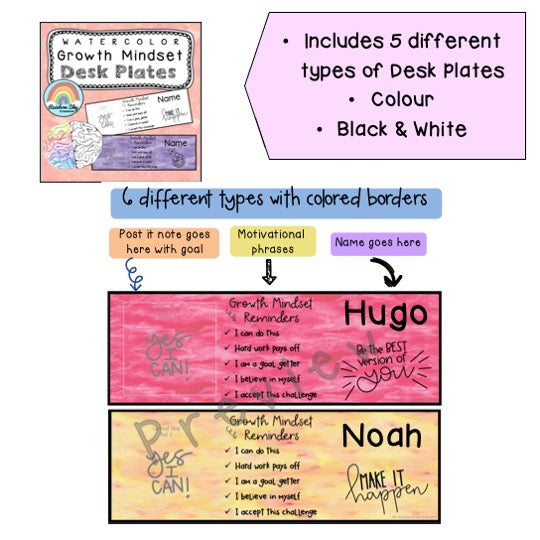 WATERCOLOR
Growth Mindset
Desk Plates
Rainbow Sky
Creations
Growth Mindset
Reminders
Name
YES
I
CAN!
MAKE IT
happen
Growth Mindset
Reminders
Name
• Includes 5 different
types of Desk Plates
• Colour
• Black & White
6 different types with colored borders
Post it note goes
here with goal
Motivational
phrases
Name goes here
yes
I
CAN!
Growth Mindset
Reminders
✓ I can do this
✓ Hard work pays off
✓ I am a goal getter
✓ I believe in myself
✓ I accept this challenge
Hugo
Be the BEST
version of
you
Preview
yes
I
CAN!
Growth Mindset
Reminders
✓ I can do this
✓ Hard work pays off
✓ I am a goal getter
✓ I believe in myself
✓ I accept this challenge
Noah
MAKE IT
happen